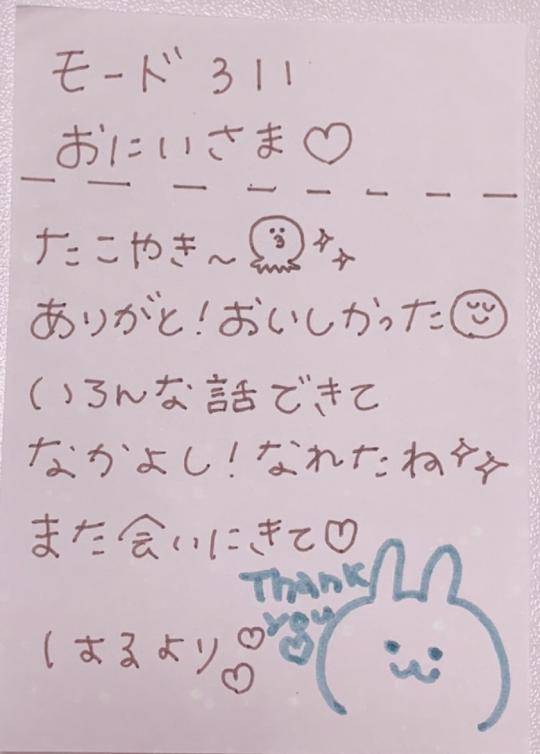 モード311
おにいさま♡
たこやき〜
ありがと!おいしかった
いろんな話できて
なかよし!なれたね
また会いにきて♡
Thank
you
はるより♡